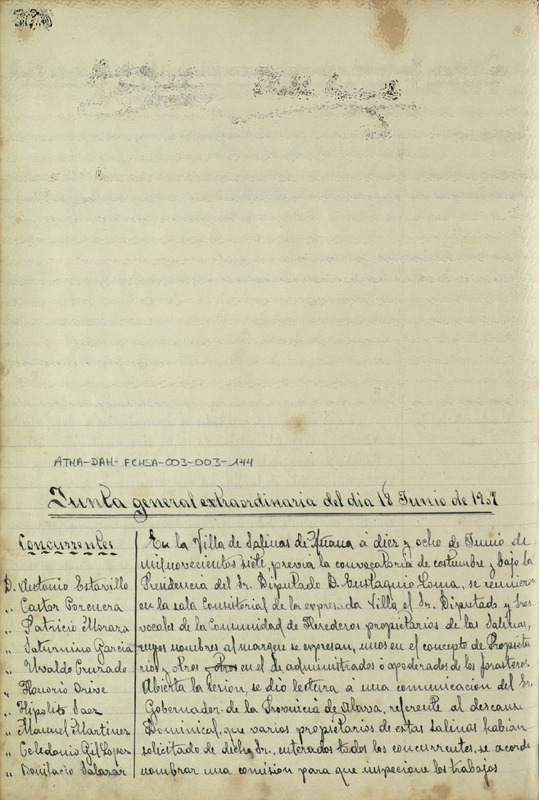 ATHA-DAH-FCHSA-003-003-144
Junta general extraordinaria del dia 18 Junio de 1907
Concurrentes
D. Antonio Estavillo
" Castor Porcuera
" Patricio Morara
" Saturnino Garcia
" Uvaldo Cruzado
" Honorio Orive
" Hipolito Saez
" Manuel Martinez
" Celedonio Gil Lopez
" Bonifacio Salazar
En la Villa de Salinas de Añana á diez y ocho de Junio de
mil novecientos siete, previa la convocatoria de costumbre y bajo la
Presidencia del Sr. Diputado D. Eustaquio Loma, se reunieron
en la sala Consistorial de la expresada Villa el Sr. Diputado y Sres
vocales de la Comunidad de Herederos propietarios de las Salinas,
cuyos nombres al margen se expresan, unos en el concepto de Propieta
rios y otros en el de administrados ó apoderados de los forasteros.
Abierta la sesion, se dio lectura á una comunicacion del Sr.
Gobernador de la Provincia de Alava, referente al descanso
Dominical, que varios propietarios de estas Salinas habian
solicitado de dicho Sr., enterados todos los concurrentes, se acordo
nombrar una comision para que inspecione los trabajos